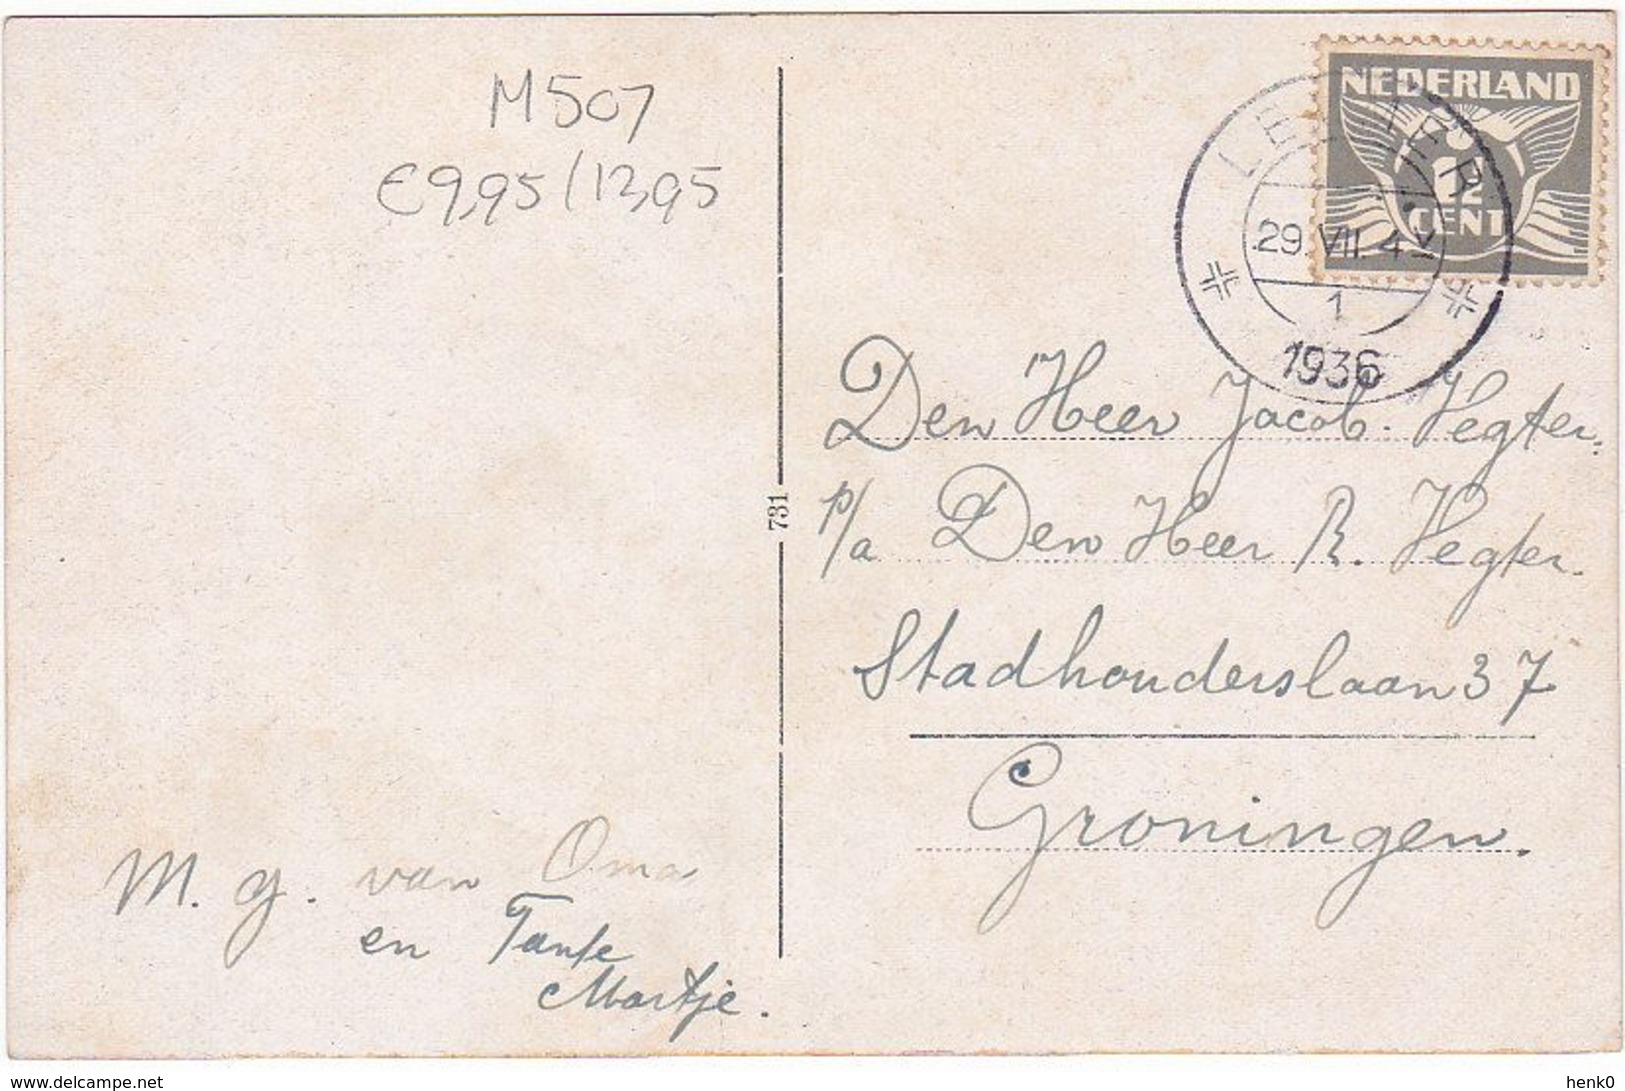 M507
€9,95/12,95
NEDERLAND
1½
CENT
29.VII.
1
1936
Den Heer Jacob. Vegter.
p/a Den Heer R. Vegter.
Stadhouderslaan 37
Groningen.
731
M. g. van Oma
en Tante
Martje.
www.delcampe.net
henk0